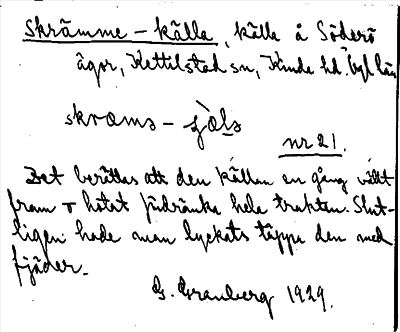 Skrämme-källa, källa å Söderö
ägor, Kettilstad sn, Kinda hd.
skrams-
nr 21.
Det berättas att den källan en gång vällt
fram o hotat fördränka hela trakten. Slut-
ligen hade man lyckats täppa den med
fjäder.
G. Granberg 1929.